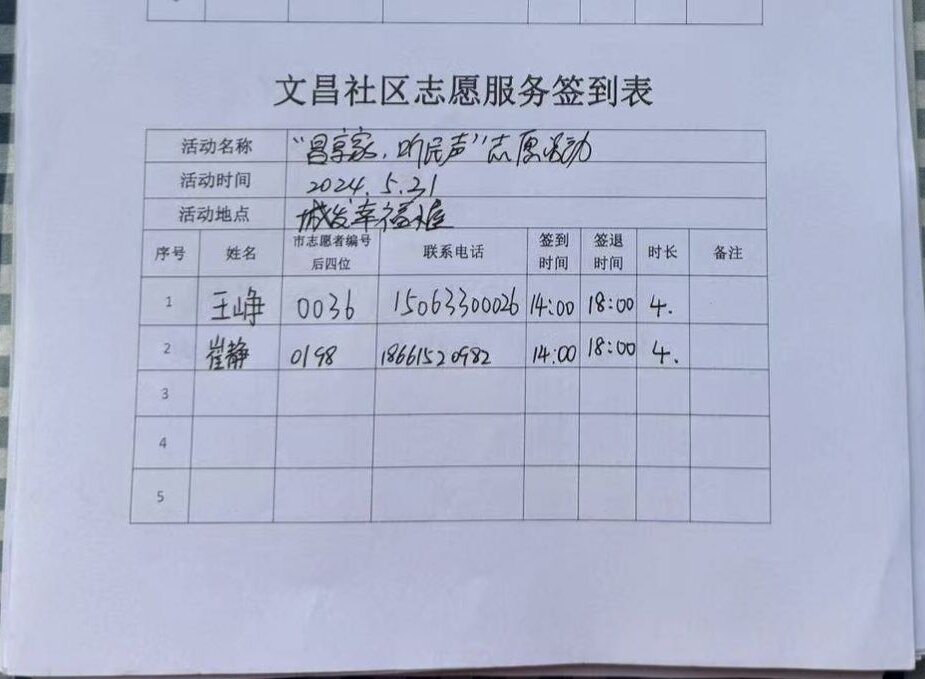 文昌社区志愿服务签到表
活动名称 “昌享家，听民声”志愿活动
活动时间 2024.5.21
活动地点 城发幸福
序号 姓名 市志愿者编号后四位 联系电话 签到时间 签退时间 时长 备注
1 王峥 0036 15063300026 14:00 18:00 4.
2 崔静 0198 18661520982 14:00 18:00 4.
3
4
5